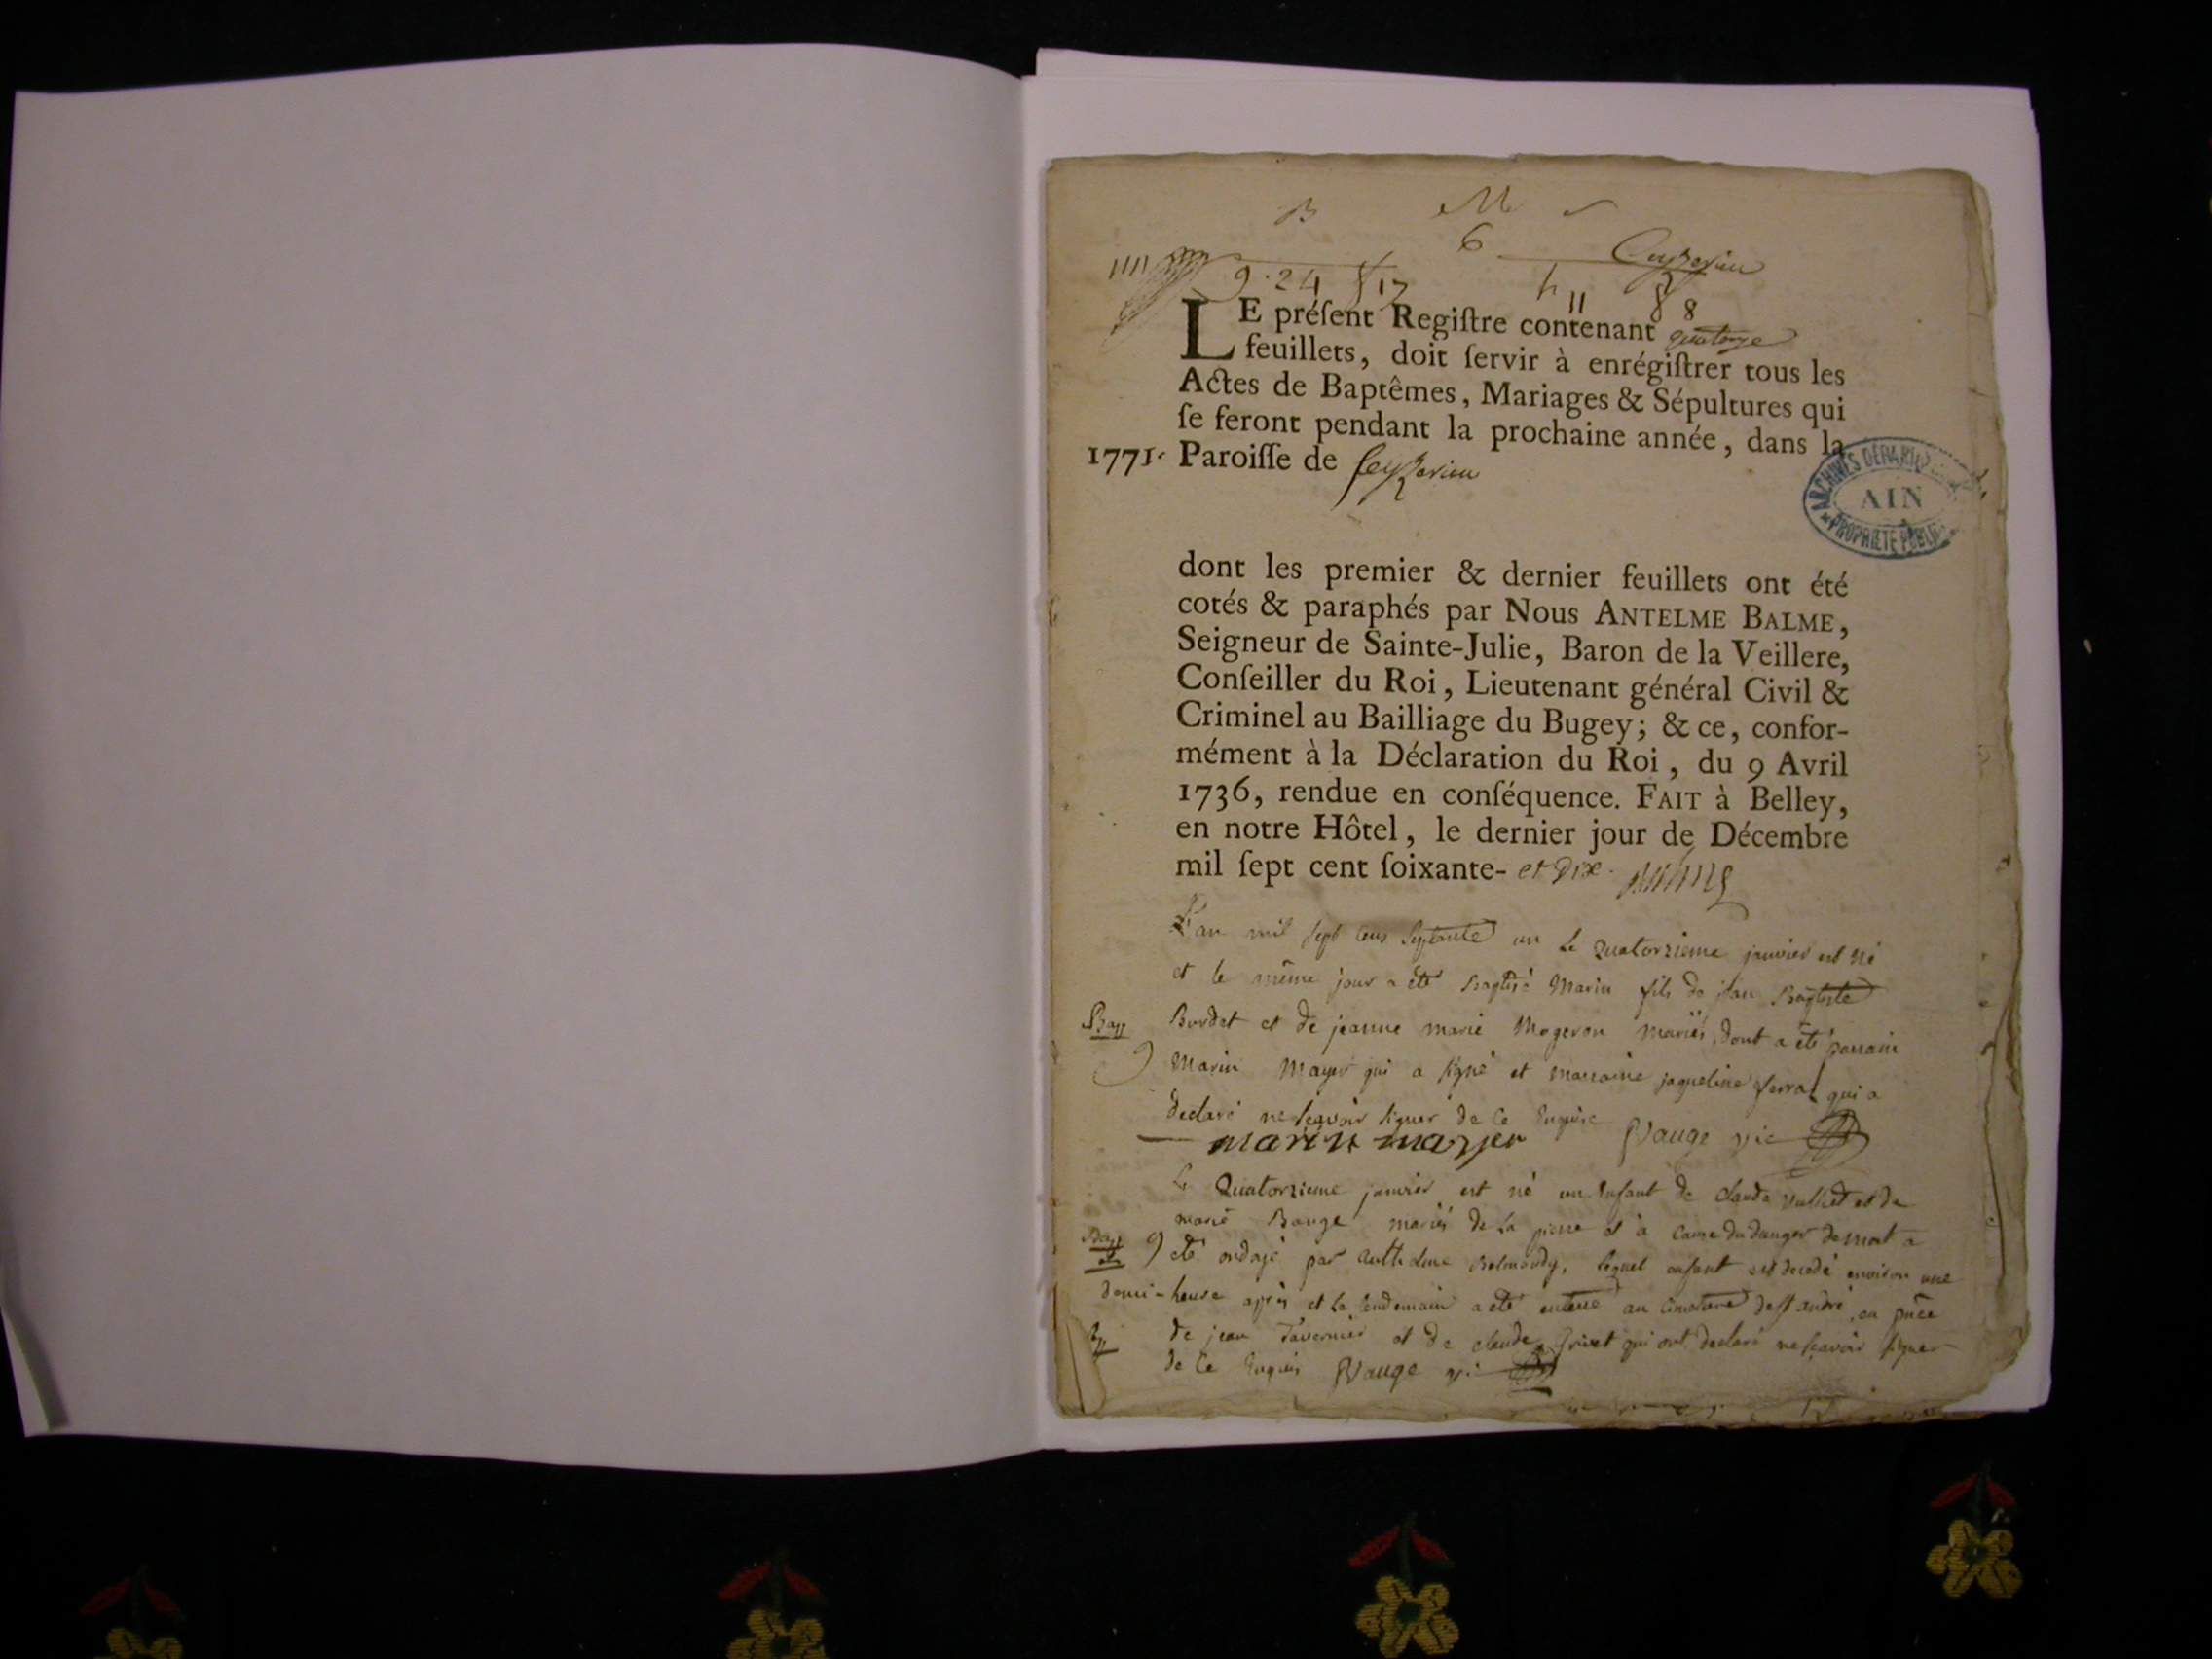 B M
6 Ceyzerieu
9. 24 17 11 8 8
LE préſent Regiſtre contenant quatorze
feuillets, doit ſervir à enrégiſtrer tous les
Actes de Baptêmes, Mariages & Sépultures qui
ſe feront pendant la prochaine année, dans la
1771. Paroiſſe de Ceyzerieu
ARCHIVES DÉPART
AIN
PROPRIÉTÉ PUBL
dont les premier & dernier feuillets ont été
cotés & paraphés par Nous ANTELME BALME,
Seigneur de Sainte-Julie, Baron de la Veillere,
Conſeiller du Roi, Lieutenant général Civil &
Criminel au Bailliage du Bugey; & ce, confor-
mément à la Déclaration du Roi, du 9 Avril
1736, rendue en conſéquence. FAIT à Belley,
en notre Hôtel, le dernier jour de Décembre
mil ſept cent ſoixante- et dix.
L'an mil sept cens septante un le quatorzieme janvier est né
et le même jour a été baptisé Marin fils de jean baptiste
Bap Burdet et de jeanne marie Mogeron mariés, dont a été parrain
9 Marin Mayer qui a signé et marraine jaqueline ferrat qui a
declaré ne sçavoir signer de ce enquise Vauge vic
marin mayer
Le Quatorzieme janvier est né un enfant de claude et de
marie Bauge mariés de la pierre et à cause du danger de mort a
Bap 9 été ondoyé par Anthelme, lequel enfant est decedé environ une
demi-heure après et le lendemain a été enterré au cimetiere de st andré, en pnce
de jean Tavernier et de claude Grivet qui ont declaré ne sçavoir signer
de ce enquis Vauge vi